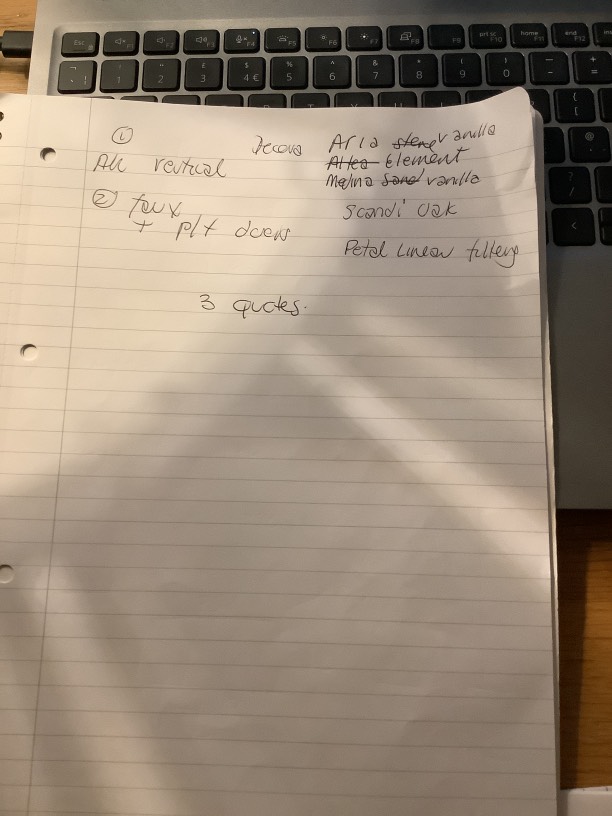 Esc F1 F2 F3 F4 F5 F6 F7 F8 F9 prt sc F10 home F11 end F12
¬ ` ¦ ! 1 " 2 £ 3 $ 4 € % 5 ^ 6 & 7 * 8 ( 9 ) 0 _ - + =
① Decora Aria stone vanilla
All vertical Altea Element
Melina Sand vanilla
② faux Scandi Oak
+ p/f doors
Petal Linear filtery
3 quotes.